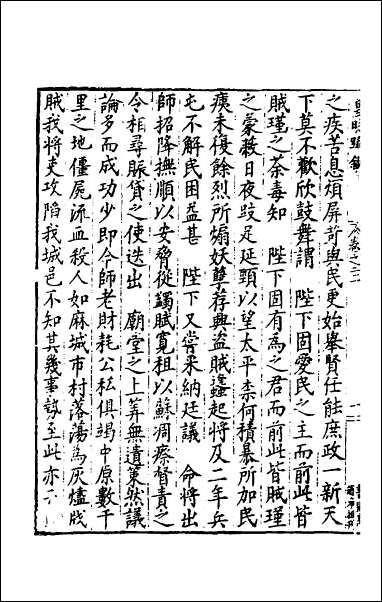 之疾苦息煩屏苛與民更始舉賢任能庶政一新天
下莫不歡欣鼓舞謂 陛下固愛民之主而前此皆
賊瑾之荼毒知 陛下固有為之君而前此皆賊瑾
之蒙蔽日夜跂足延頸以望太平柰何積暴所加民
痍未復餘烈所煽妖孽荐興盜賊蠭起將及二年兵
屯不解民困益甚 陛下又嘗采納廷議 命將出
師招降撫順以安脅從蠲賦寬租以蘇凋瘵督責之
令相尋賑貸之使迭出 廟堂之上筭無遺策然議
論多而成功少即今師老財耗公私俱竭中原數千
里之地僵屍流血殺人如麻城市村落蕩為灰燼戕
賊我將吏攻陷我城邑不知其幾事勢至此亦
卷之二